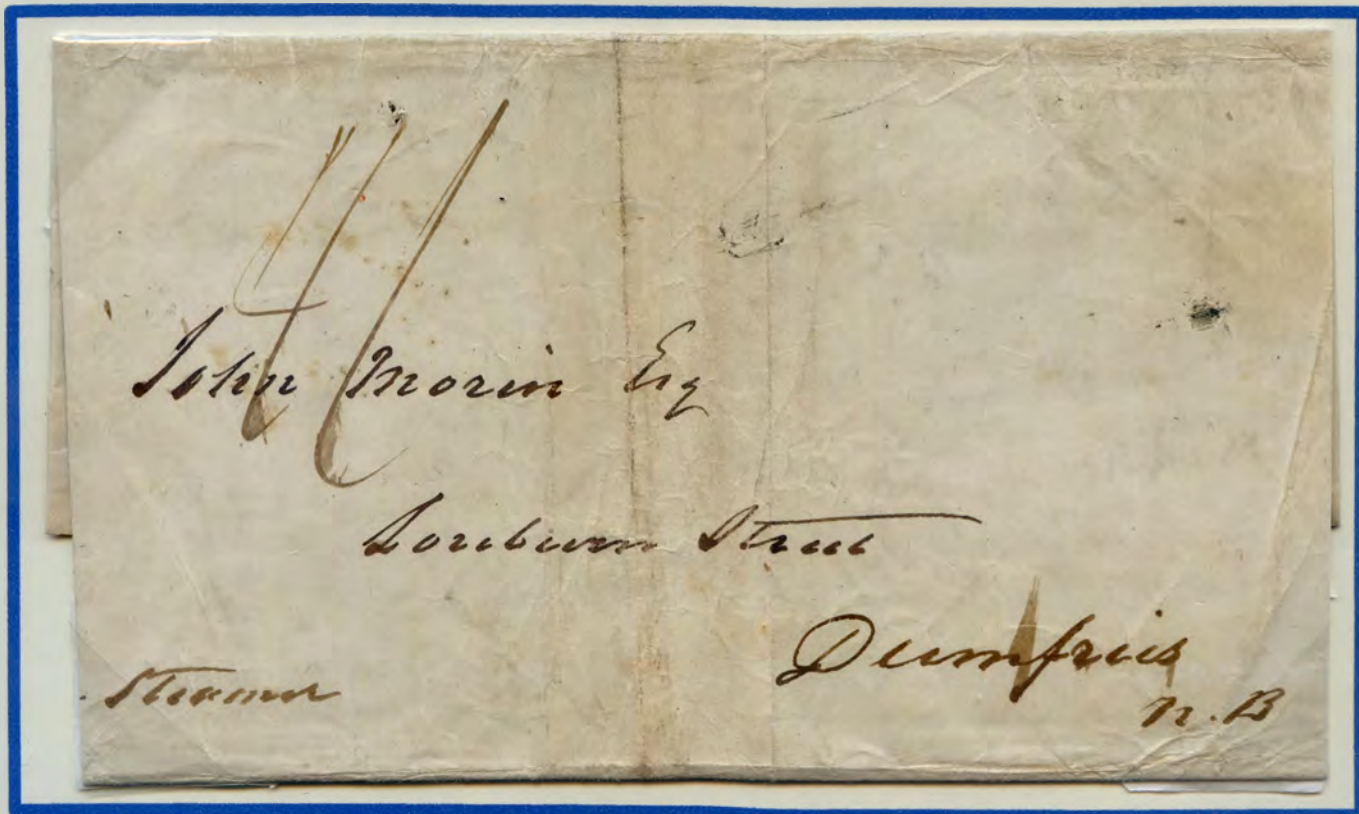 John Morin Esq
Loreburn Street
Dumfries
N.B
Steamer